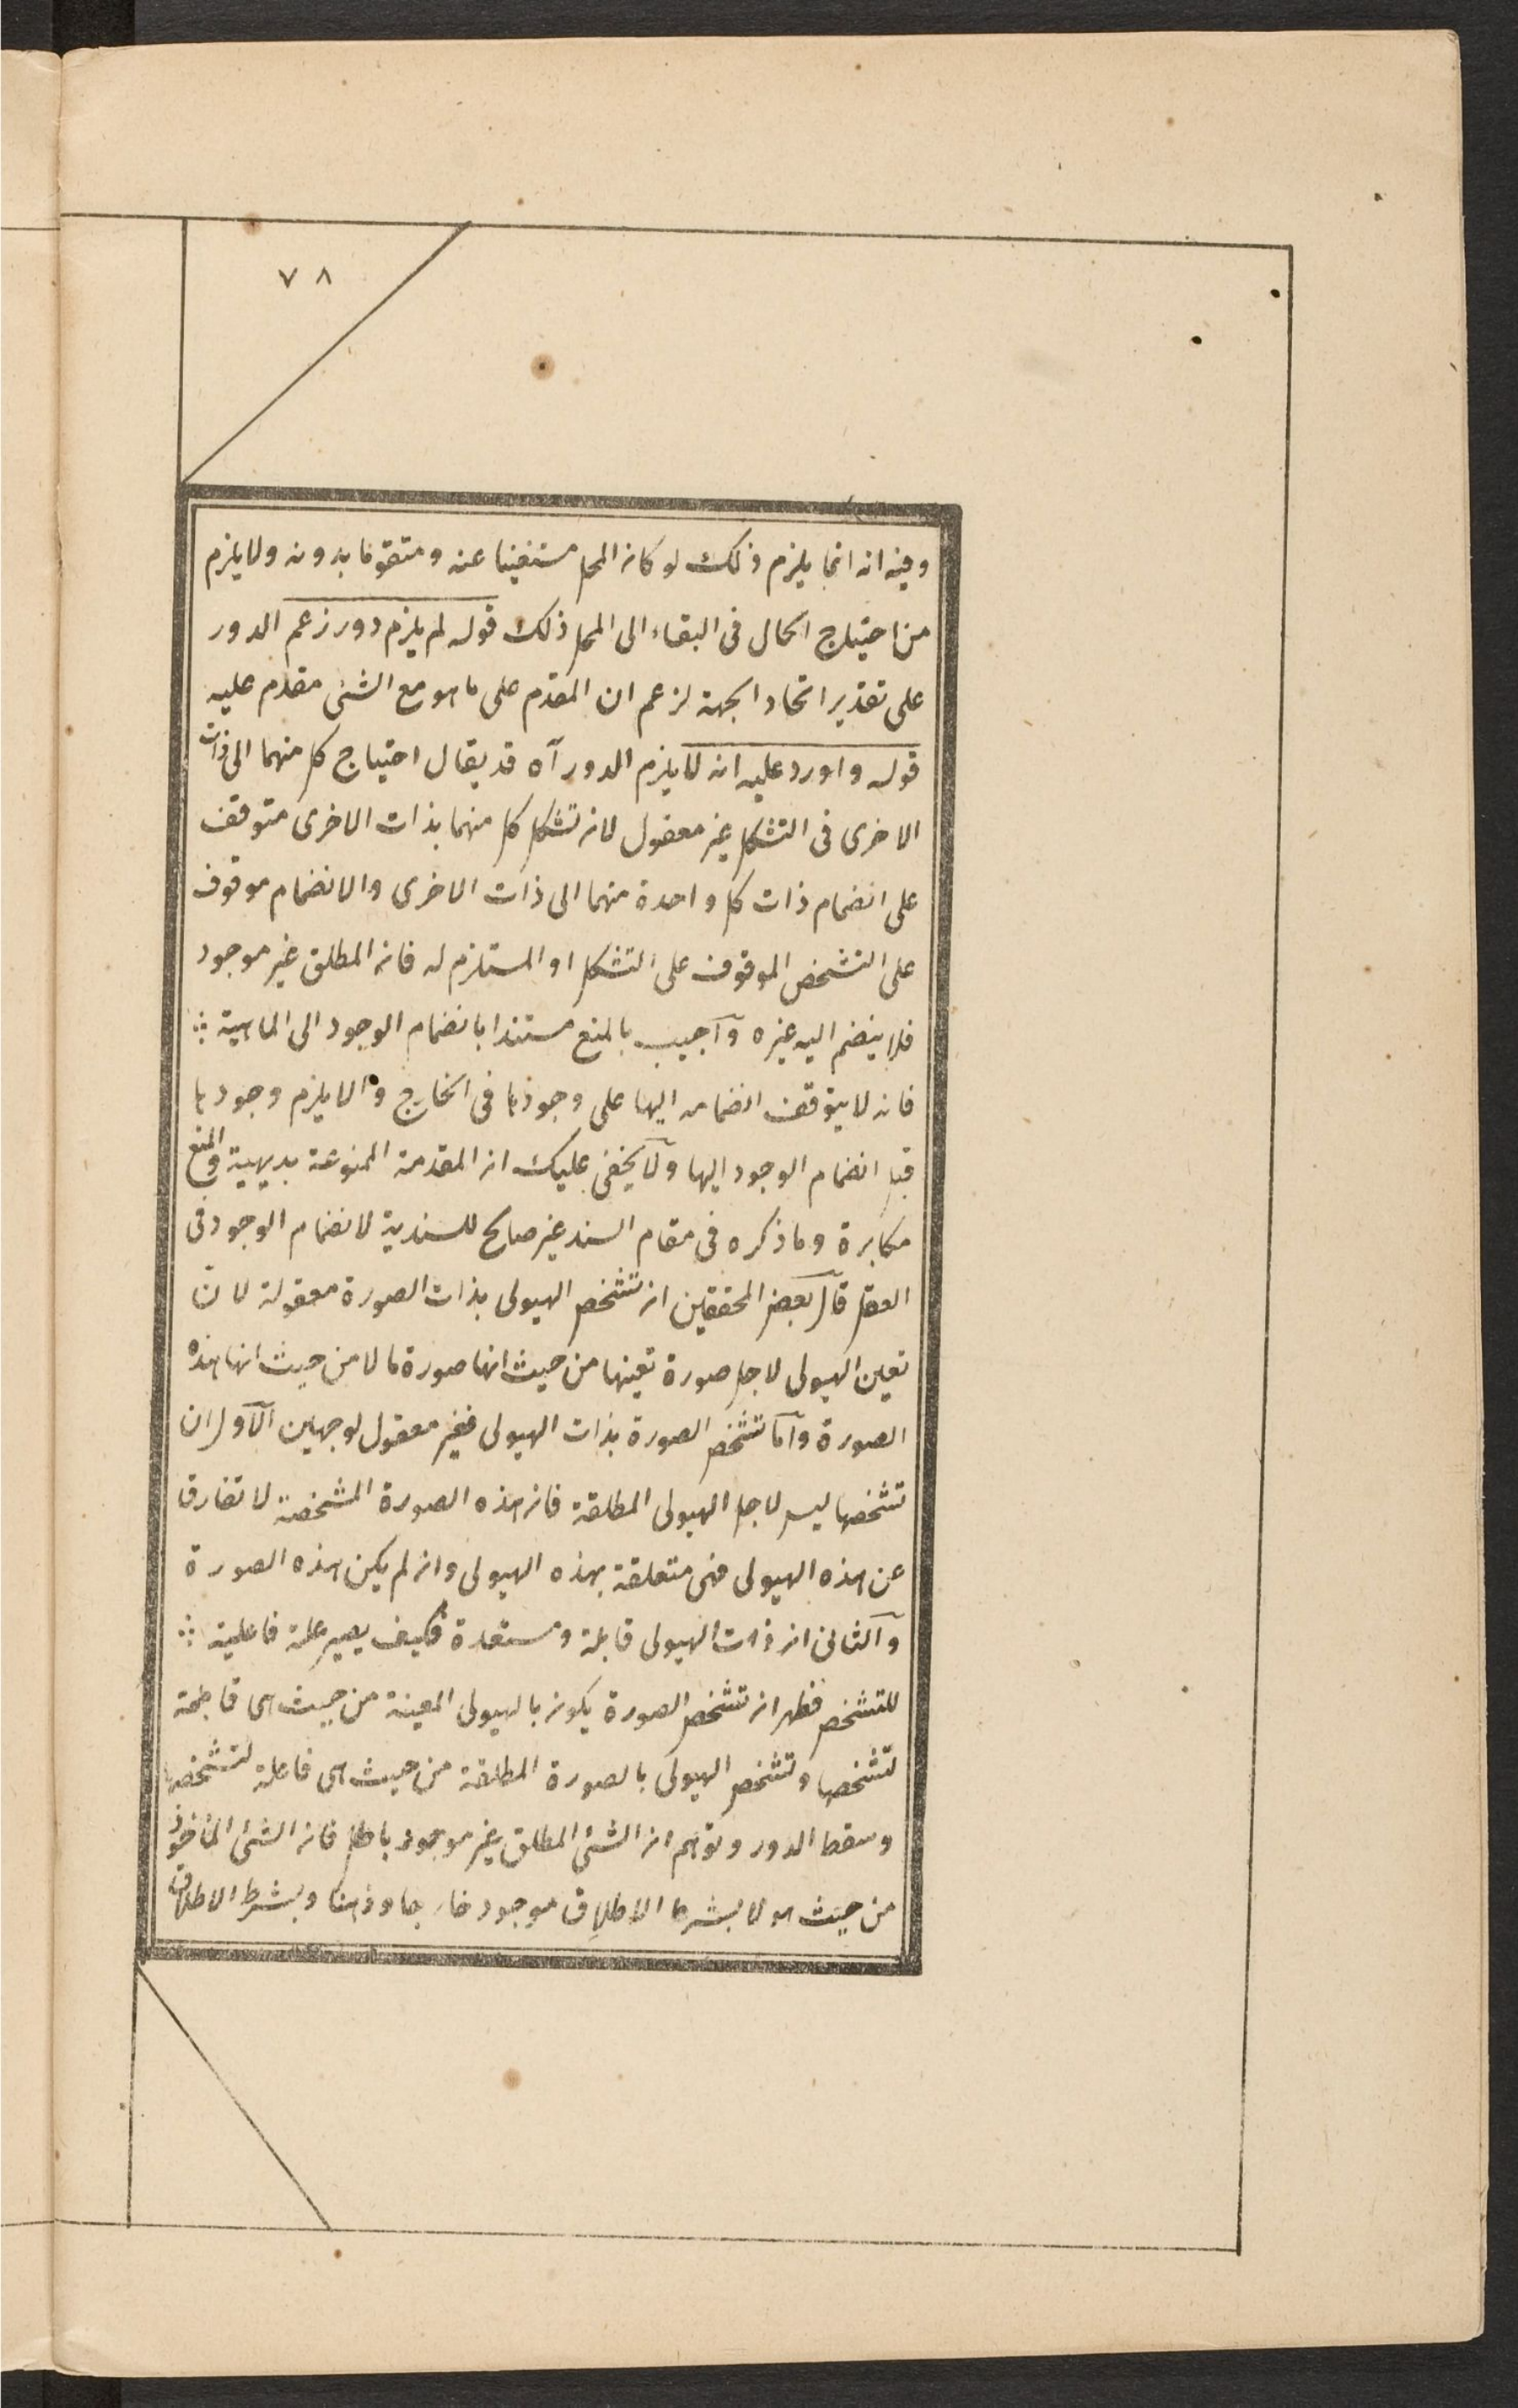 ٧٨
وفيه انه انما يلزم ذلك لو كان المحل مستغنيا عنه ومتقوما بدونه ولا يلزم
من احتياج الحال فى البقاء الى المحل ذلك قوله لم يلزم دور زعم الدور
على تقدير اتحاد الجهة لزعم ان المقدم على ما هو مع الشئ مقدم عليه
قوله واورد عليه انه لا يلزم الدور آه قد يقال احتياج كل منهما الى ذات
الاخرى فى التشكل غير معقول لان تشكل كل منهما بذات الاخرى متوقف
على انضمام ذات كل واحدة منهما الى ذات الاخرى والانضمام موقوف
على التشخص الموقوف على التشكل او المستلزم له فان المطلق غير موجود
فلا ينضم اليه غيره وآجيب بالمنع مستندا بانضمام الوجود الى الماهية ؞
فانه لا يتوقف انضمامه اليها على وجودها فى الخارج والا يلزم وجودها
قبل انضمام الوجود اليها ولآ يخفى عليك ان المقدمة الممنوعة بديهية والمنع
مكابرة وما ذكره فى مقام السند غير صالح للسندية لانضمام الوجود فى
العقل قآل بعض المحققين ان تشخص الهيولى بذات الصورة معقولة لانّ
تعين الهيولى لاجل صورة تعينها من حيث انها صورة ما لا من حيث انها هذه
الصورة وآما تشخص الصورة بذات الهيولى فغير معقول لوجهين الآول ان
تشخصها ليس لاجل الهيولى المطلقة فان هذه الصورة المشخصة لا تفارق
عن هذه الهيولى فهى متعلقة بهذه الهيولى وان لم يكن هذه الصورة
وآلثانى ان ذات الهيولى قابلة ومستعدة فكيف يصير علة فاعلية ؞
للتشخص فظهر ان تشخص الصورة يكون بالهيولى المعينة من حيث هى قابلة
لتشخصها وتشخص الهيولى بالصورة المطلقة من حيث هى فاعلة لتشخصها
وسقط الدور وتوهم ان الشئ المطلق غير موجود باطل فان الشئ المأخوذ
من حيث هو لا بشرط الاطلاق موجود خارجا وذهنا وبشرط الاطلاق